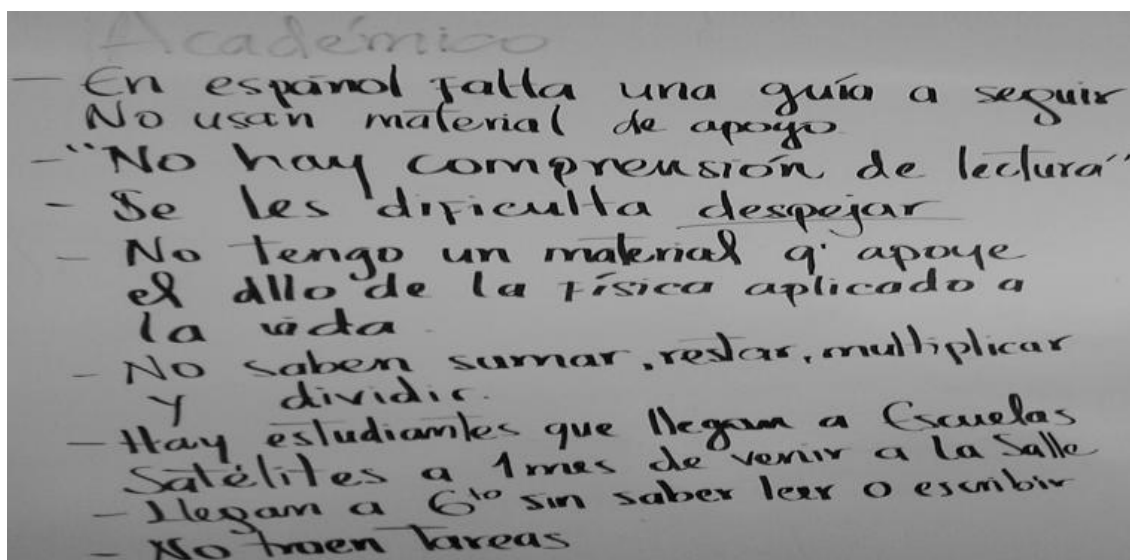 Académico
- En español falta una guía a seguir
No usan material de apoyo
- "No hay comprensión de lectura"
- Se les dificulta despejar
- No tengo un material q' apoye
el dllo de la física aplicado a
la vida.
- No saben sumar, restar, multiplicar
y dividir.
- Hay estudiantes que llegan a Escuelas
Satélites a 1 mes de venir a la Salle
- Llegan a 6to sin saber leer o escribir
- No traen tareas